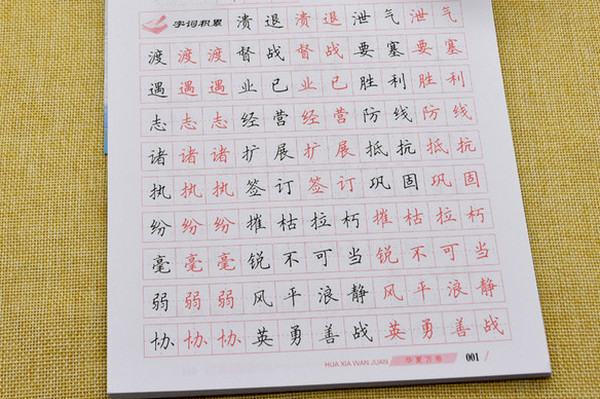 字词积累 溃退溃退泄气泄气
渡渡渡督战督战要塞要塞
遇遇遇业已业已胜利胜利
志志志经营经营防线防线
诸诸诸扩展扩展抵抗抵抗
执执执签订签订巩固巩固
纷纷纷摧枯拉朽摧枯拉朽
毫毫毫锐不可当锐不可当
弱弱弱风平浪静风平浪静
协协协英勇善战英勇善战
HUA XIA WAN JUAN 华夏万卷 001